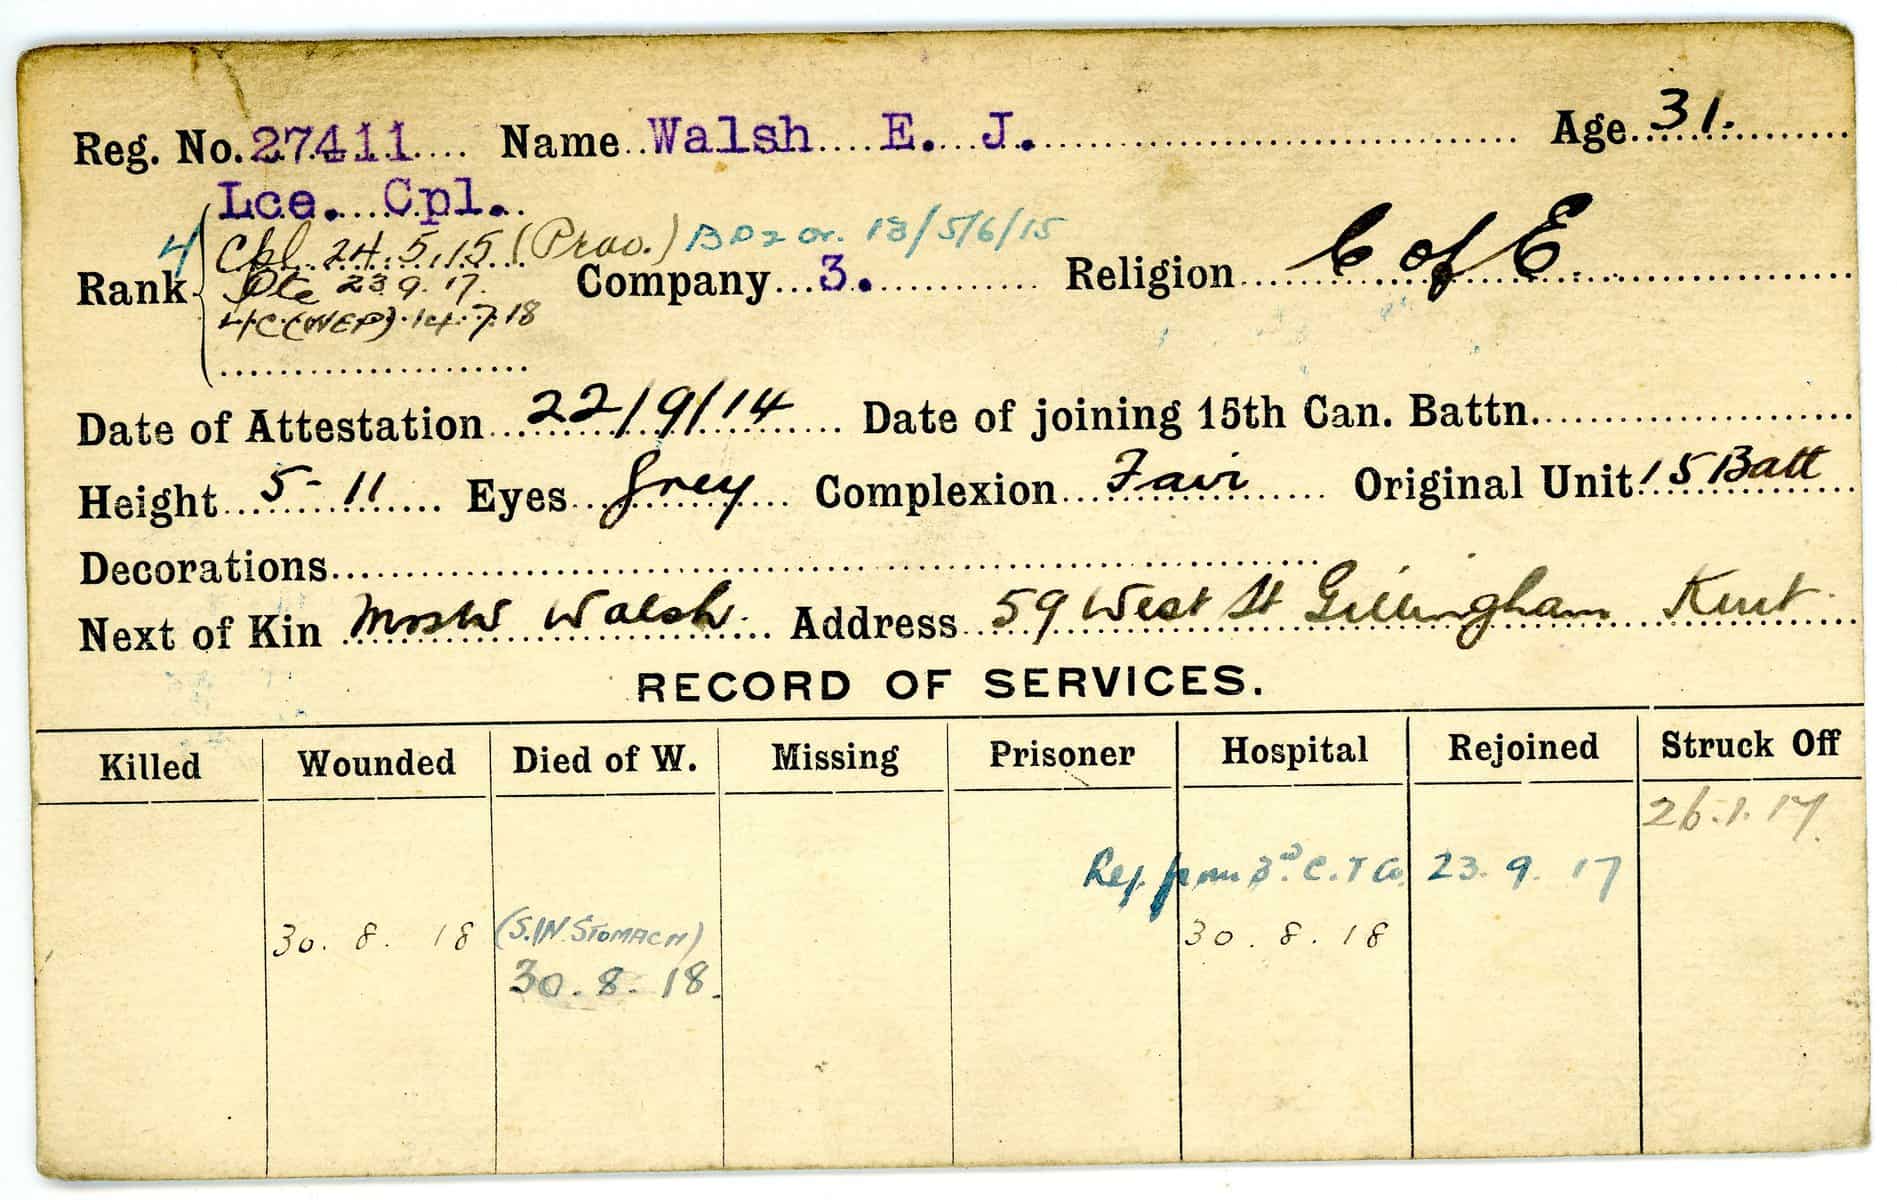 Reg. No. 27411 Name Walsh E. J. Age 31.
Lce. Cpl.
4 Cpl 24.5.15 (Prov.) BD2 or. 18/5/6/15
Rank Pte 23.9.17. Company 3. Religion C of E.
L/C (WEP) 14.7.18
Date of Attestation 22/9/14 Date of joining 15th Can. Battn.
Height 5-11 Eyes Grey Complexion Fair Original Unit 15 Batt
Decorations
Next of Kin Walsh Address 59 West St Gillingham Kent
RECORD OF SERVICES.
Killed Wounded Died of W. Missing Prisoner Hospital Rejoined Struck Off
26.1.17.
Rej. from 3rd C.T Co. 23.9.17
30.8.18 (S.IN STOMACH) 30.8.18
30.8.18.